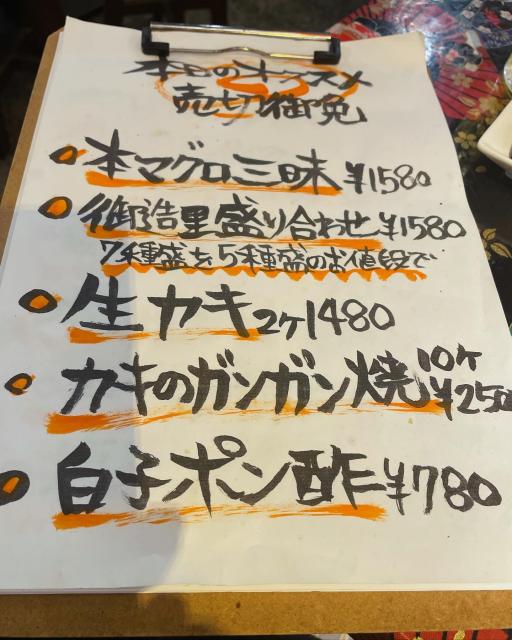 本日のオススメ
売切御免
本マグロ三昧 ¥1580
御造里盛り合わせ ¥1580
7種盛を5種盛のお値段で
生カキ 2ケ 1480
カキのガンガン焼 10ケ
¥250
白子ポン酢 ¥780